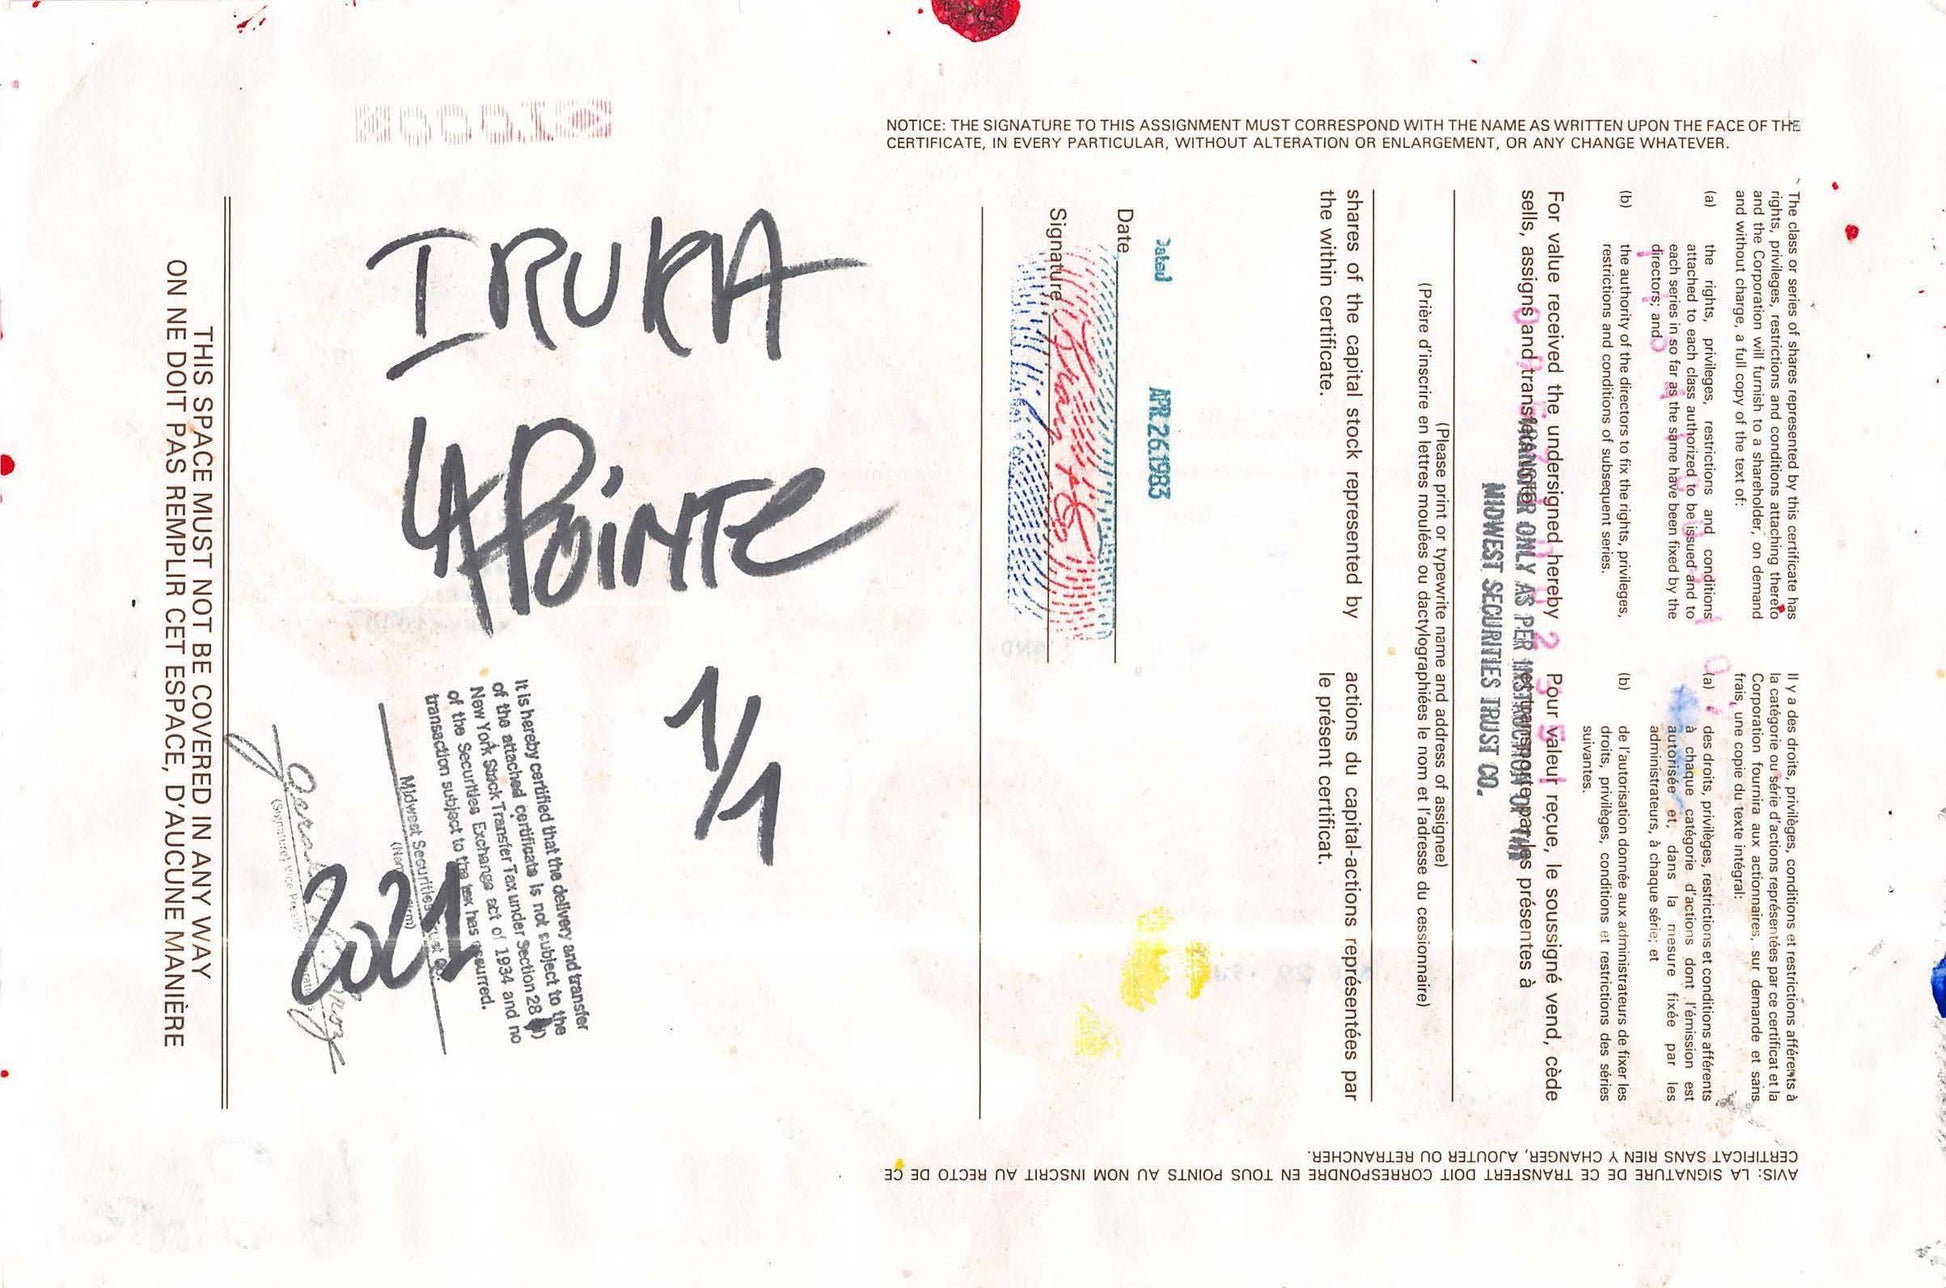 NOTICE: THE SIGNATURE TO THIS ASSIGNMENT MUST CORRESPOND WITH THE NAME AS WRITTEN UPON THE FACE OF THE
CERTIFICATE, IN EVERY PARTICULAR, WITHOUT ALTERATION OR ENLARGEMENT, OR ANY CHANGE WHATEVER.
The class or series of shares represented by this certificate has
rights, privileges, restrictions and conditions attaching thereto
and the Corporation will furnish to a shareholder, on demand
and without charge, a full copy of the text of:
(a) the rights, privileges, restrictions and conditions
attached to each class authorized to be issued and to
each series in so far as the same have been fixed by the
directors; and
(b) the authority of the directors to fix the rights, privileges,
restrictions and conditions of subsequent series.
Il y a des droits, privilèges, conditions et restrictions afférents à
la catégorie ou série d'actions représentées par ce certificat et la
Corporation fournira aux actionnaires, sur demande et sans
frais, une copie du texte intégral:
(a) des droits, privilèges, restrictions et conditions afférents
à chaque catégorie d'actions dont l'émission est
autorisée et, dans la mesure fixée par les
administrateurs, à chaque série; et
(b) de l'autorisation donnée aux administrateurs de fixer les
droits, privilèges, conditions et restrictions des séries
suivantes.
For value received the undersigned hereby
sells, assigns and transfers unto
Pour valeur reçue, le soussigné vend, cède
et transporte par les présentes à
TRANSFER ONLY AS PER INSTRUCTION OF THE
MIDWEST SECURITIES TRUST CO.
(Please print or typewrite name and address of assignee)
(Prière d'inscrire en lettres moulées ou dactylographiées le nom et l'adresse du cessionnaire)
shares of the capital stock represented by
the within certificate.
actions du capital-actions représentées par
le présent certificat.
Dated APR 26 1983
Date
Signature
IRUKA
LAPOINTE
1/1
2021
It is hereby certified that the delivery and transfer
of the attached certificate is not subject to the
New York Stock Transfer Tax under Section 28
of the Securities Exchange act of 1934 and no
transaction subject to the tax has occurred.
Midwest Securities
THIS SPACE MUST NOT BE COVERED IN ANY WAY
ON NE DOIT PAS REMPLIR CET ESPACE, D'AUCUNE MANIÈRE
AVIS: LA SIGNATURE DE CE TRANSFERT DOIT CORRESPONDRE EN TOUS POINTS AU NOM INSCRIT AU RECTO DE CE
CERTIFICAT SANS RIEN Y CHANGER, AJOUTER OU RETRANCHER.